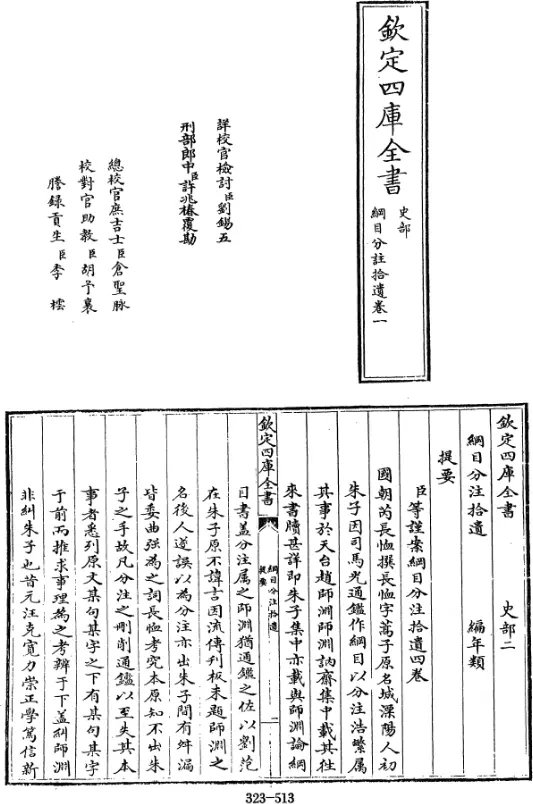 欽定四庫全書
史部
綱目分註拾遺卷一
詳校官檢討臣劉錫五
刑部郎中臣許兆椿覆勘
總校官庶吉士臣倉聖脈
校對官助教臣胡予襄
謄錄貢生臣李樰
欽定四庫全書 史部二
綱目分注拾遺 編年類
提要
臣等謹案綱目分注拾遺四卷
國朝芮長恤撰長恤字蒿子原名城溧陽人初
朱子因司馬光通鑑作綱目以分注浩繁屬
其事於天台趙師淵師淵訥齋集中載其往
來書牘甚詳即朱子集中亦載與師淵論綱
欽定四庫全書
綱目分注拾遺
提要
一
目書蓋分注屬之師淵猶通鑑之佐以劉范
在朱子原不諱言因流傳刋板未題師淵之
名後人遂誤以為分注亦出朱子間有舛漏
皆委曲强為之詞長恤考究本原知不出朱
子之手故凡分注之刪削通鑑以至失其本
事者悉列原文某句某字之下有某句某字
于前而推求事理為之考辨于下蓋糾師淵
非糾朱子也昔元汪克寛力崇正學篤信新
323-513